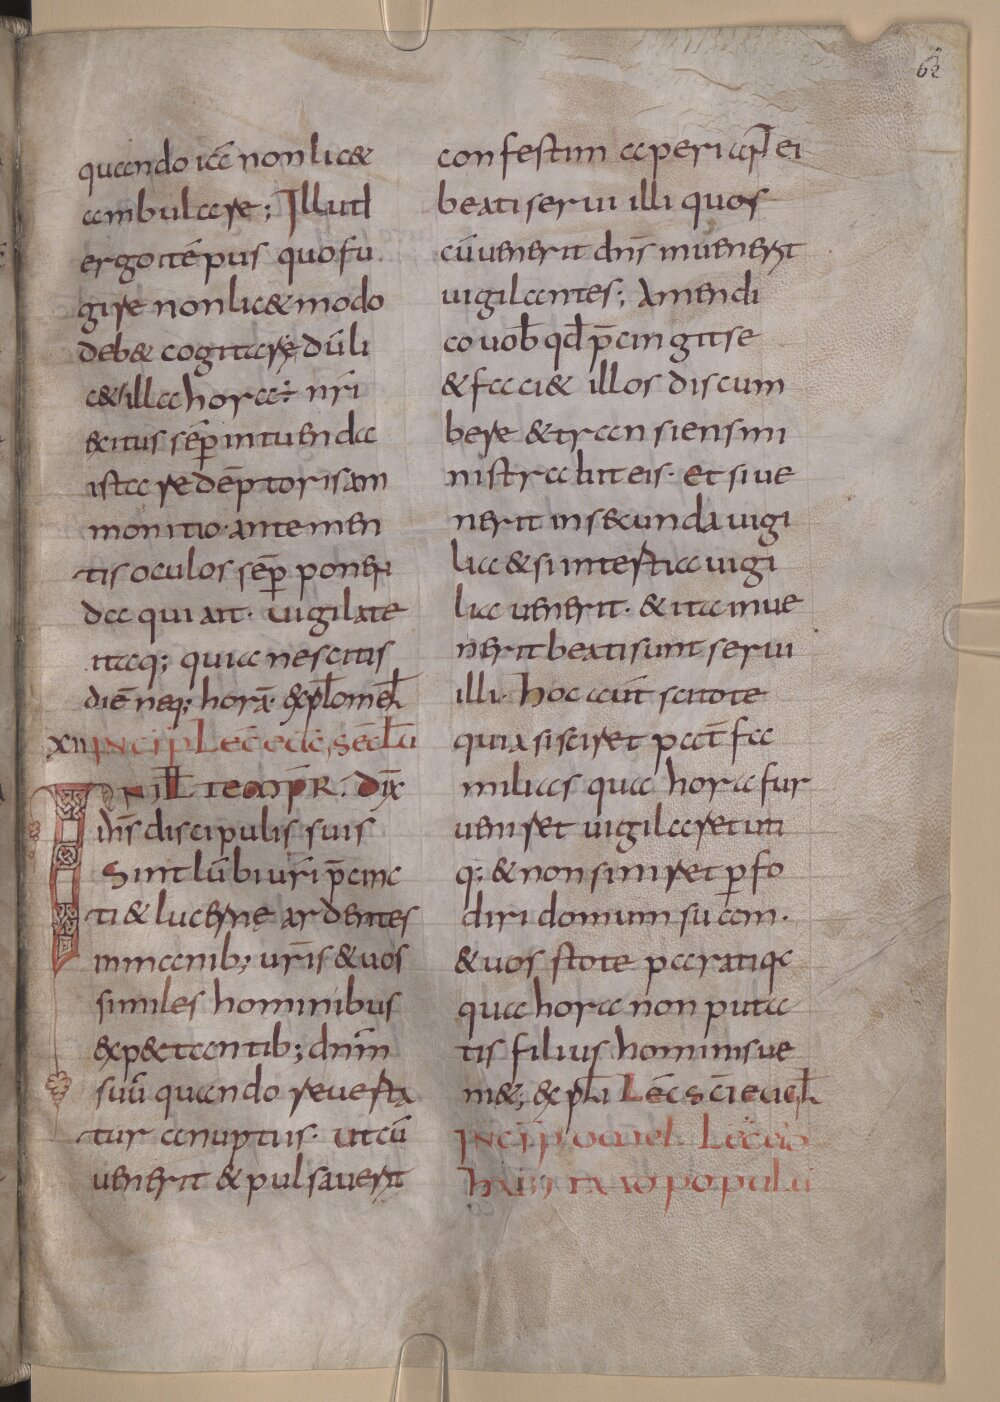 62
quando iā non lic&
ambulare; Illud
ergo tēpus quo fu
gire non lic& modo
deb& cogitare dū li
c& illa hora ÷ nr̄i
exitus sēp intuenda
ista redēptoris am
monitio· ante men
tis oculos sēp ponen
da qui ait· uigilate
itaq; quia nescitis
diē neq; horā· expl̄ omel̄
XII INCIP LEC̄
IN ILL TEMPR̄. dix̄
ih̄s discipulis suis
Sint lūbi ur̄i p̄cinc
ti & lucerne ardentes
in manib; ur̄is & uos
similes hominibus
exp&tentib; dnm̄
suū quando reuerta
tur a nuptiis· ut cū
uenerit & pulsauerit
confestim aperiant ei
beati serui illi quos
cū uenerit dn̄s inuenerit
uigilantes; Amen di
co uob̄ qd̄ p̄cingit se
& faci& illos discum
bere & transiens mi
nistrabit eis· Et si ue
nerit in secunda uigi
lia & si in tertia uigi
lia uenerit· & ita inue
nerit beati sunt serui
illi· hoc aut̄ scitote
quia si sciret pat̄ fa
milias qua hora fur
ueniret uigilaret uti
q; & non sineret pfo
diri domum suam·
& uos stote parati qa
qua hora non puta
tis filius hominis ue
ni&; expl̄i Lec̄ s̄ci eugl̄
INCIP